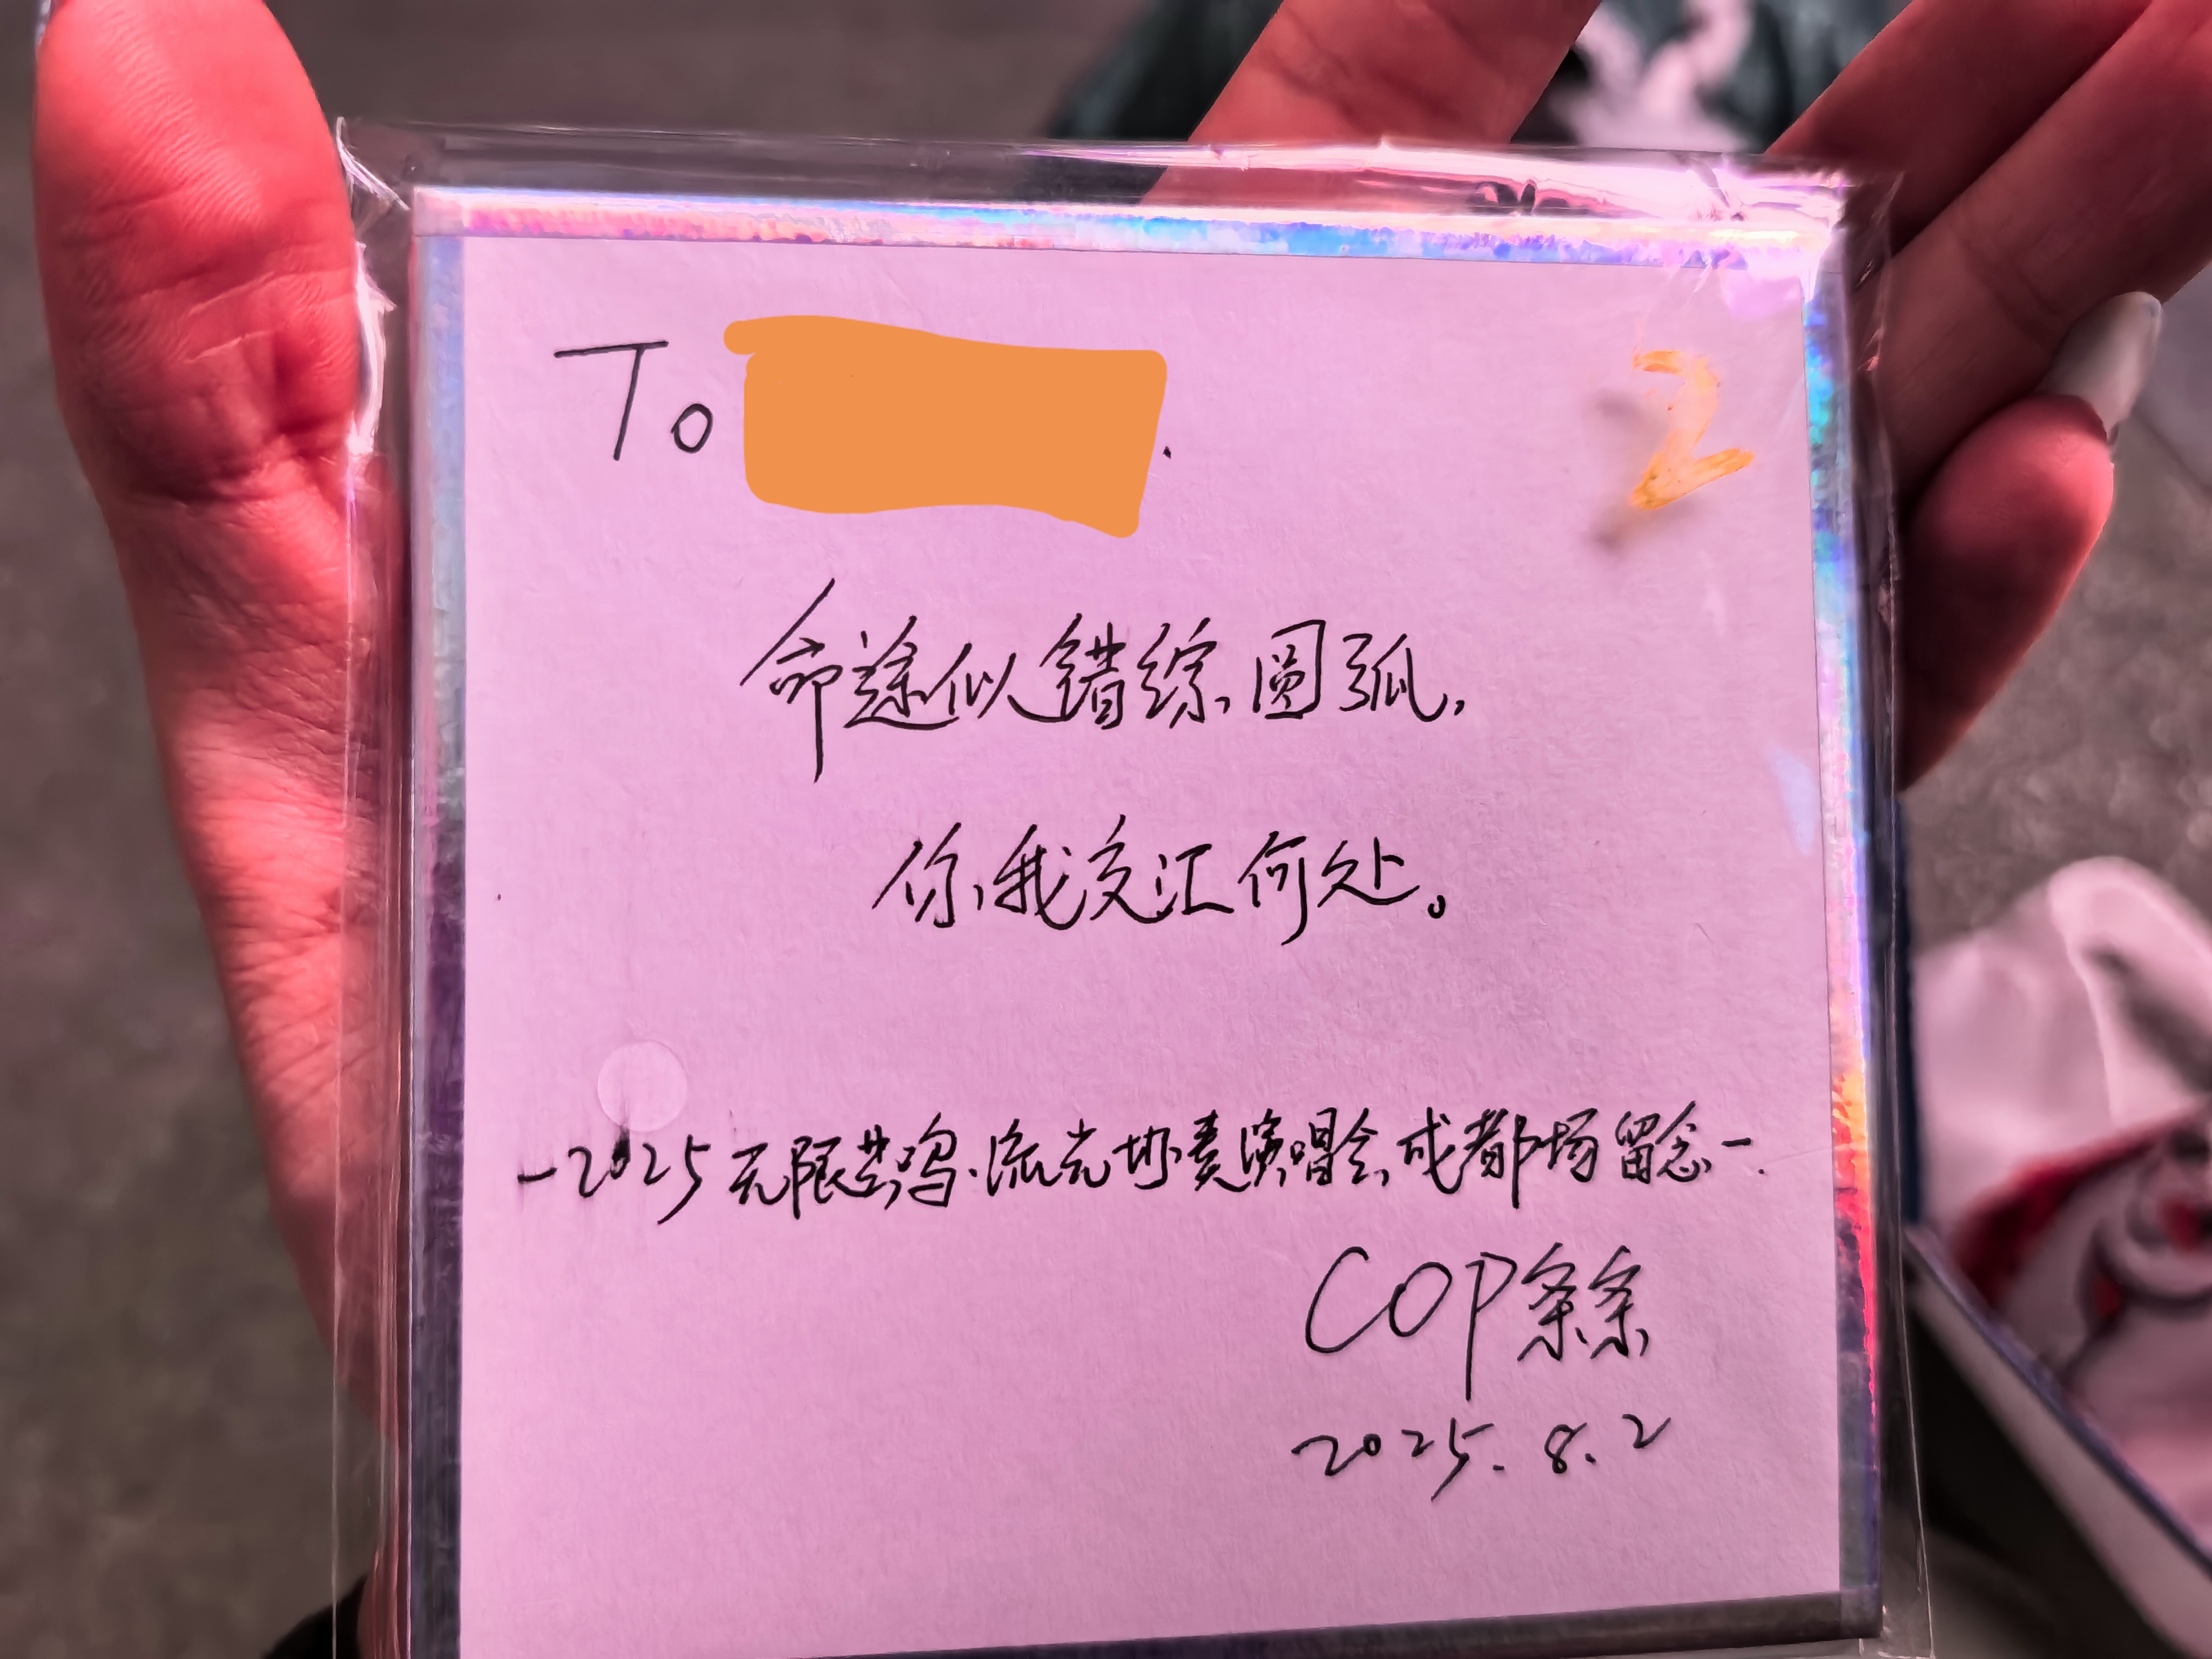 To .
2
命途似错综圆弧,
你我交汇何处。
-2025无限共鸣·流光协奏演唱会成都场留念-.
COP条条
2025.8.2